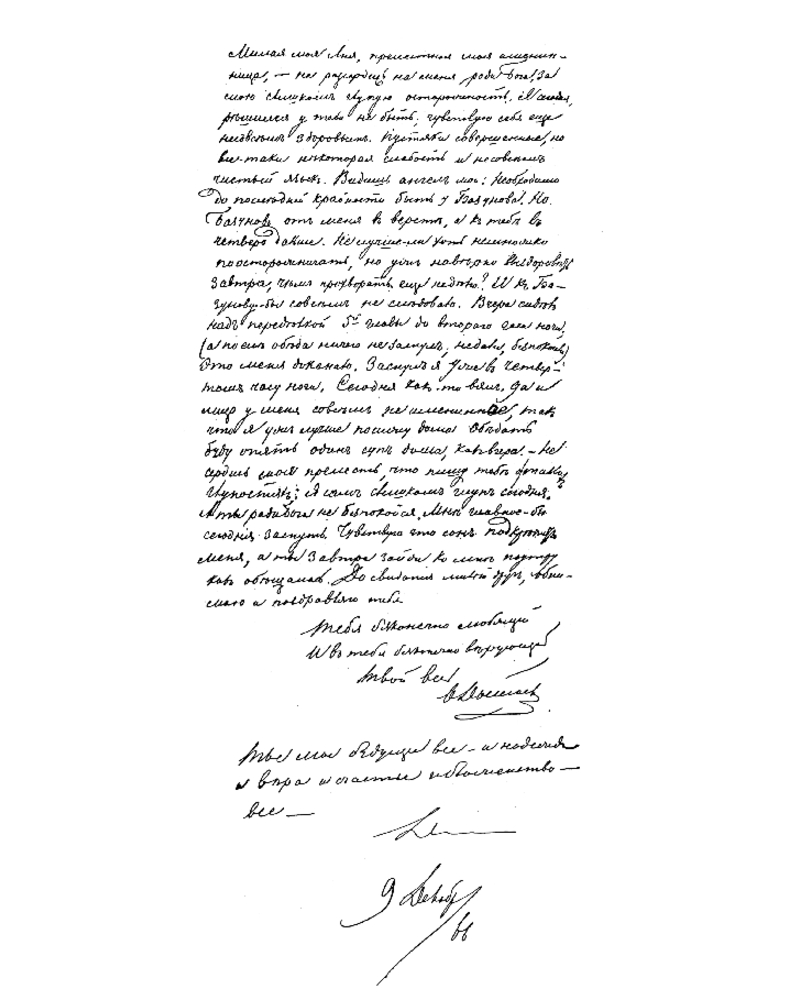 Милая моя Аня, прелестная моя имянин-
ница, — не рассердись на меня, ради Бога, за
мою слишкомъ глупую осторожность. Я сегодня
рѣшился у тебя не быть; чувствую себя еще
не совсѣмъ здоровымъ. Пустяки совершенные, но
все-таки некоторая слабость и не совсѣмъ
чистый языкъ. Видишь ангелъ мой: Необходимо
до послѣдней крайности быть у Базунова. Но
Базуновъ отъ меня в верстѣ, а къ тебѣ въ
четверо дальше. Не лучше-ли хоть немножко
поосторожничать, но ужъ навѣрно выздоровѣть
завтра, чѣмъ прохворать еще недѣлю? И къ Ба-
зунову-бы совсѣмъ не слѣдовало. Вчера сидѣлъ
надъ передѣлкой 5й главы до втораго часа ночи,
(а послѣ обѣда ничего не заснулъ; не дали, безпокоили)
Это меня доканало. Заснулъ я уже в четвер-
томъ часу ночи. Сегодня какъ-то вялъ, да и
лицо у меня совсѣмъ не имениннoе, такъ
что я ужъ лучше посижу дома. Обѣдать
буду опять одинъ супъ дома, какъ вчера. — Не
сердись моя прелесть, что пишу тебѣ о такихъ
глупостяхъ: Я самъ слишкомъ глупъ сегодня.
А ты ради бога не безпокойся. Мнѣ главное-бы
сегодня заснуть. Чувствую что сонъ подкрѣпитъ
меня, а ты завтра зайди ко мнѣ поутру
какъ обѣщалась. До свиданія милый другъ, обни-
маю и поздравляю тебя.
Тебя безконечно любящій
И въ тебя безконечно вѣрующій
твой весь
Ѳ. Достоевск
Ты мое будущее все — и надежда
и вѣра и счастье и блаженство —
все —
9 Декабр
/66